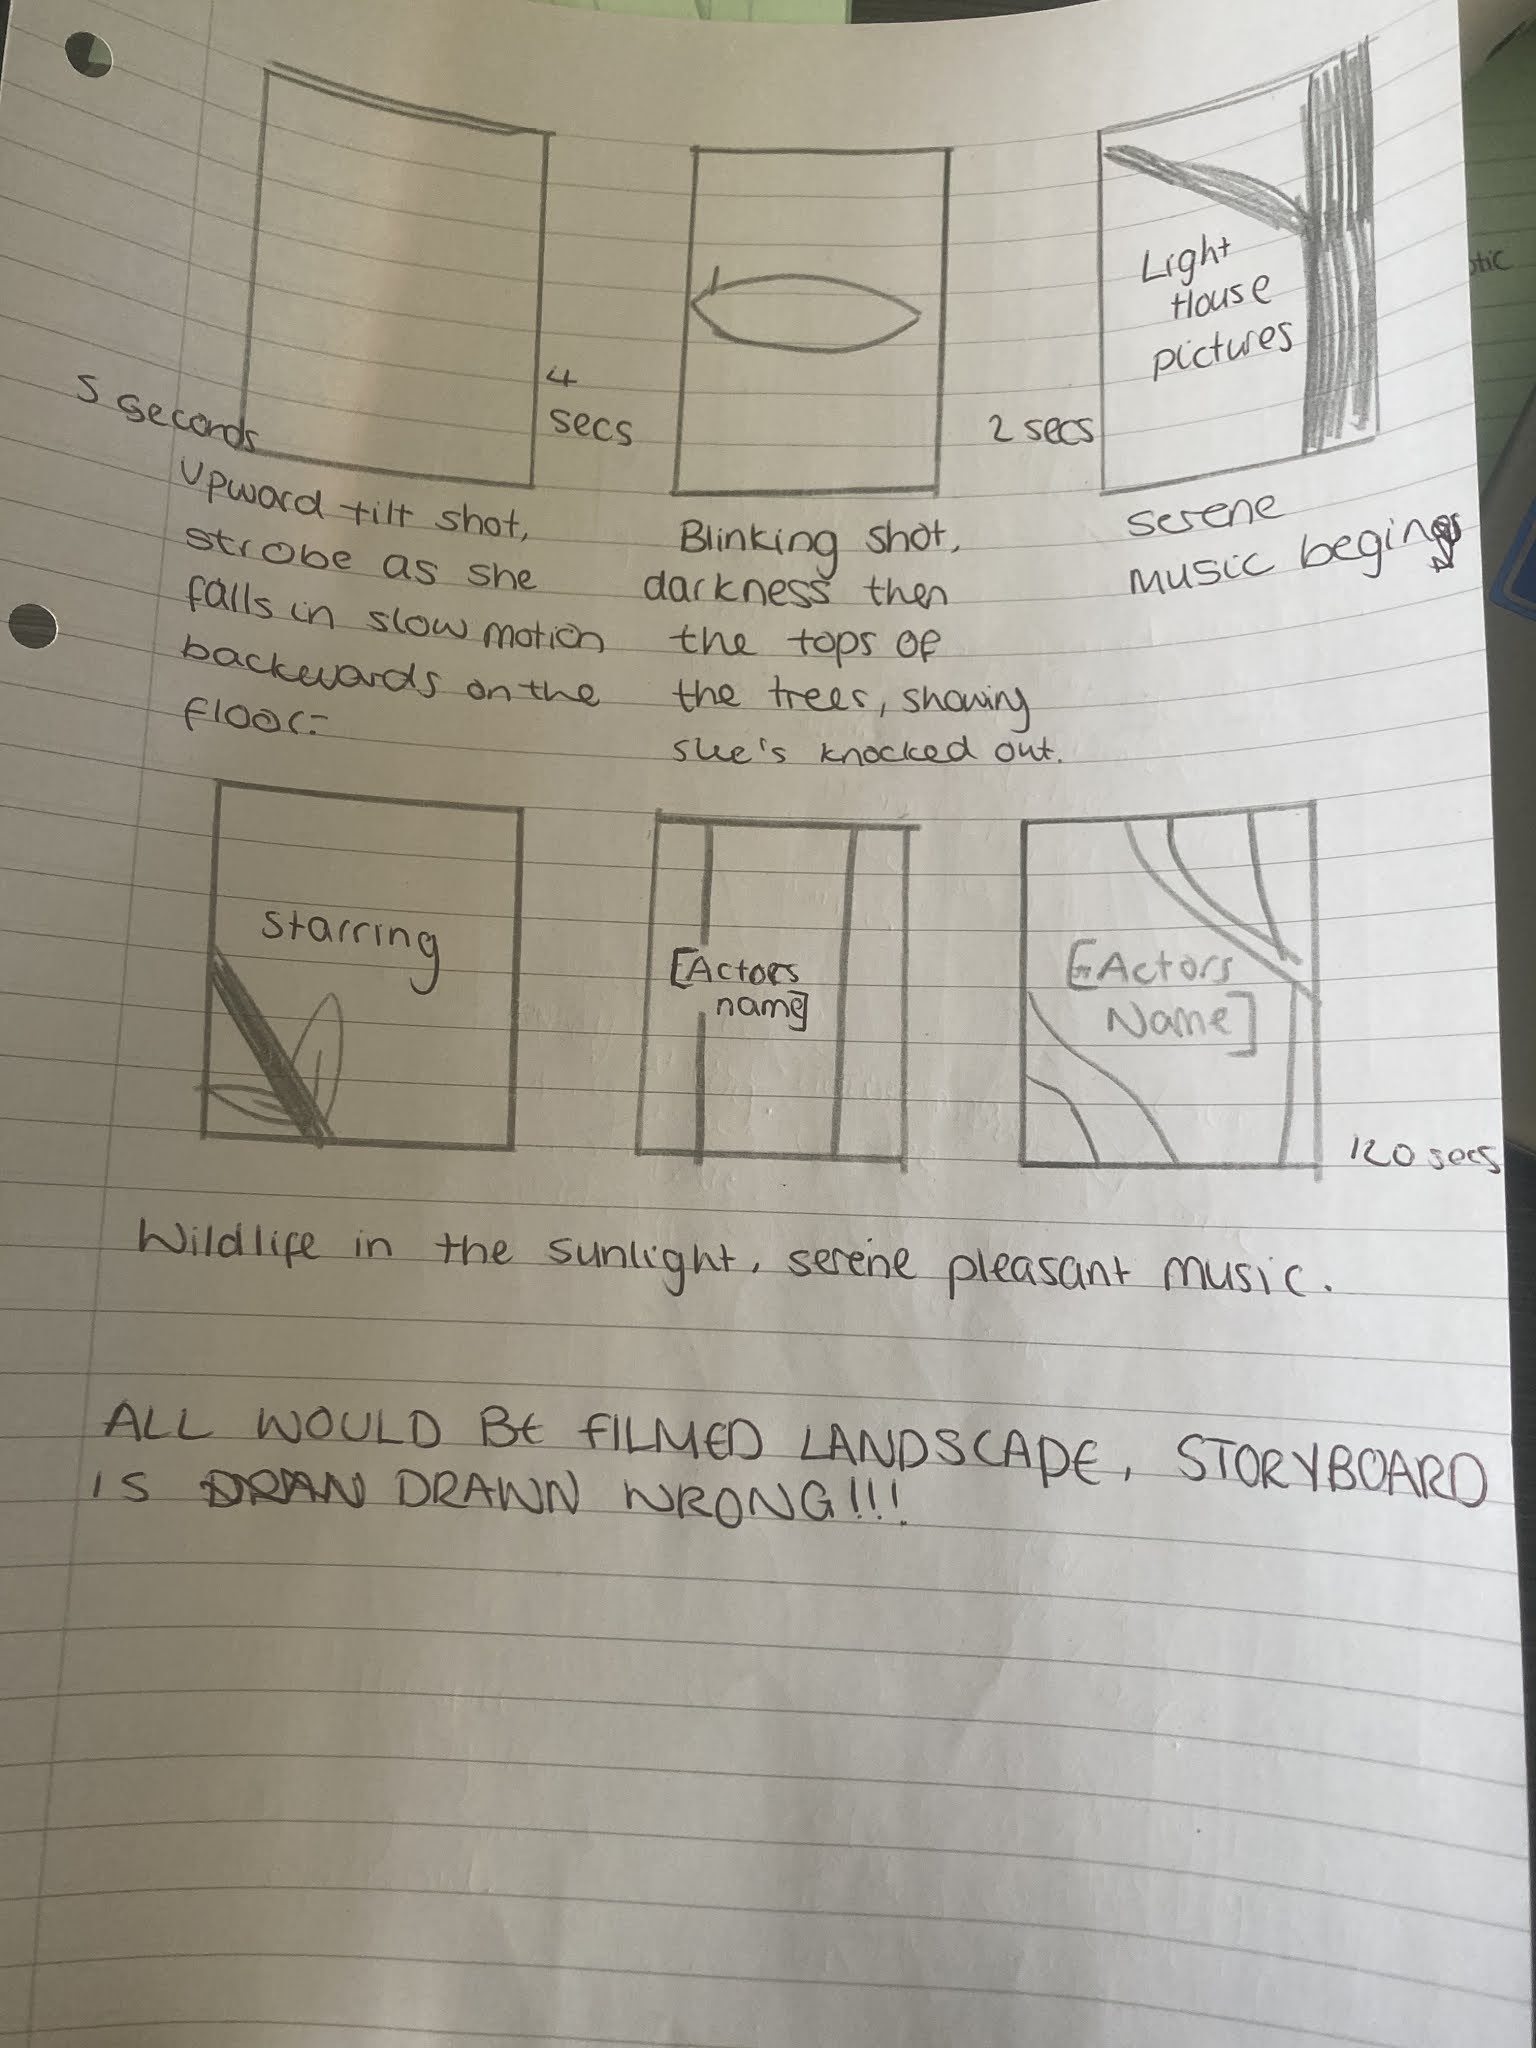 5 seconds
Upward tilt shot,
strobe as she
falls in slow motion
backwards on the
floor.-
4
secs
Blinking shot,
darkness then
the tops of
the trees, showing
she's knocked out.
2 secs
Light
House
pictures
serene
music begins
Starring
[Actors
name]
[Actors
Name]
120 secs
Wildlife in the sunlight, serene pleasant music.
ALL WOULD BE FILMED LANDSCAPE, STORYBOARD
IS DRAWN WRONG!!!